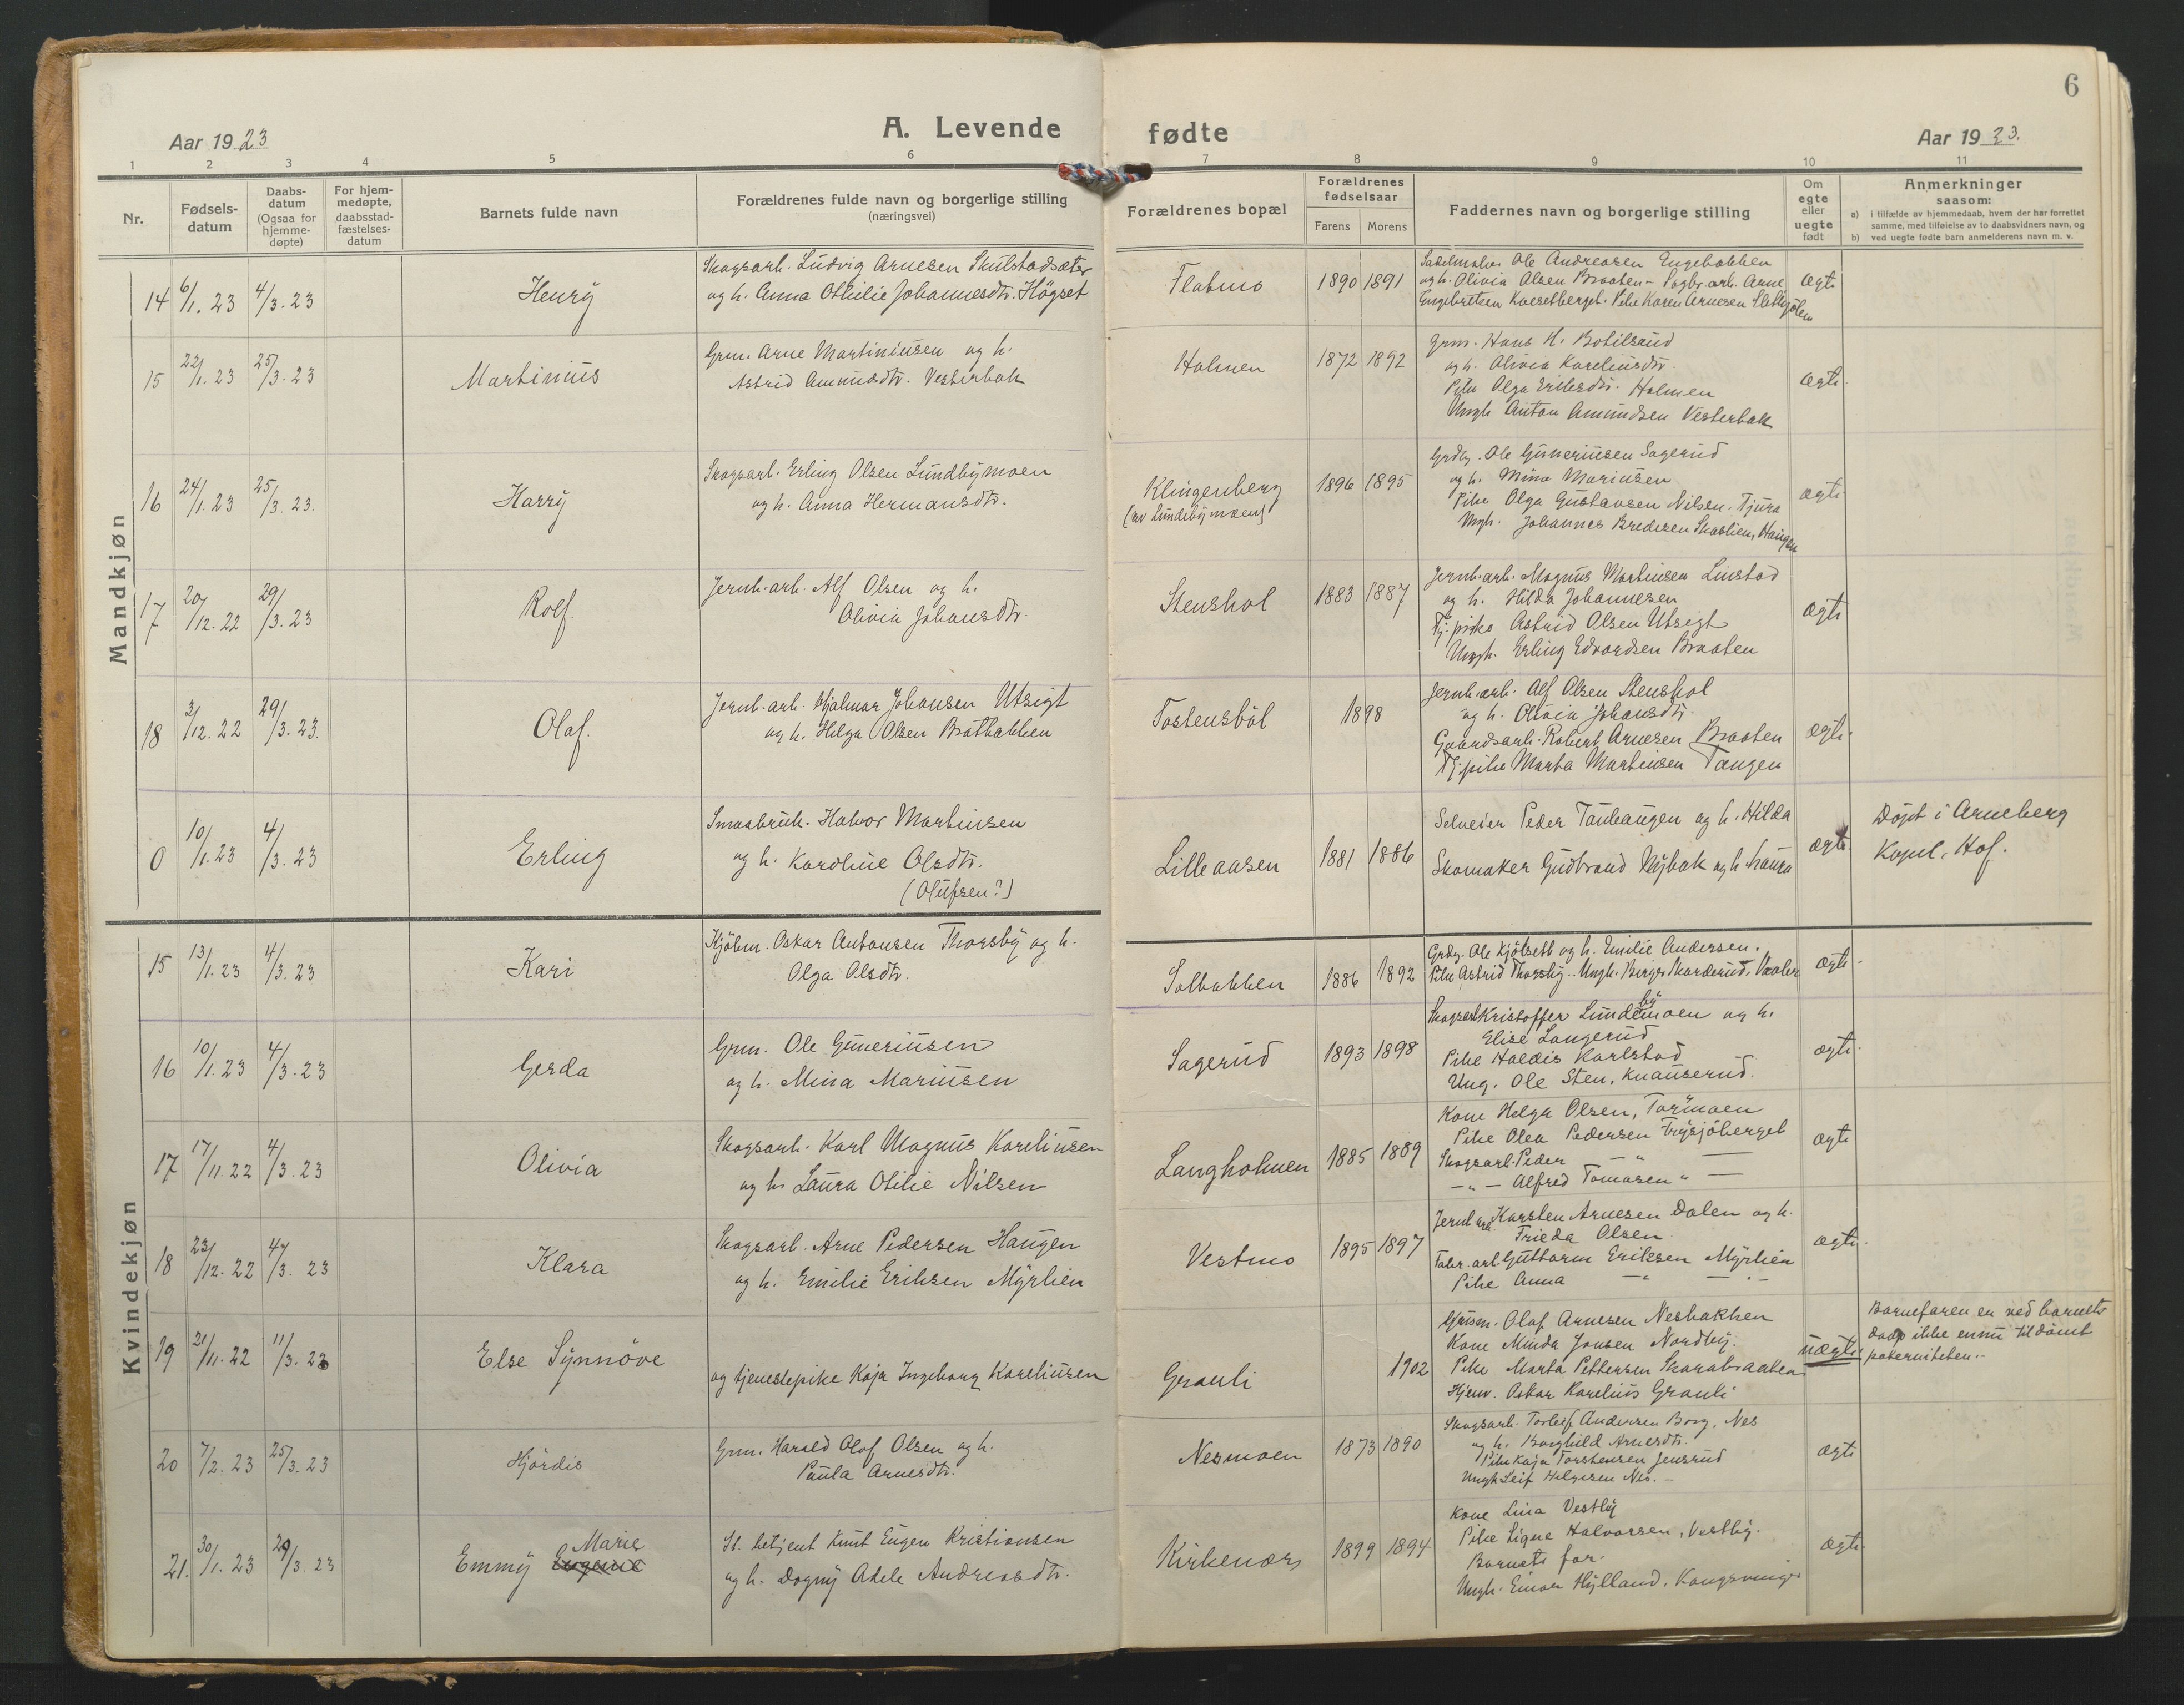 6
Aar 1923
A. Levende fødte
Aar 1923.
1 2 3 4 5 6 7 8 9 10 11
Nr.
Fødsels-
datum
Daabs-
datum
(Ogsaa for
hjemme-
døpte)
For hjem-
medøpte,
daabsstad-
fæstelses-
datum
Barnets fulde navn
Forældrenes fulde navn og borgerlige stilling
(næringsvei)
Forældrenes bopæl
Forældrenes
fødselsaar
Farens Morens
Faddernes navn og borgerlige stilling
Om
egte
eller
uegte
født
Anmerkninger
saasom:
a) i tilfælde av hjemmedaab, hvem der har forrettet
samme, med tilføielse av to daabsvidners navn, og
b) ved uegte fødte barn anmelderens navn m. v.
Mandkjøn
14 6/1. 23 4/3. 23
Henry
Skogsarb. Ludvig Arnesen Skulstadsæter
og h. Anna Othilie Johannesdtr. Högset
Flatmo
1890 1891
Sadelmaker Ole Andreasen Engebakken
og h. Olivia Olsen Braaten - Sagbr. arb. Arne
Engebretsen Pike Karen Arnesen
ægte
15 22/1. 23 25/3. 23
Martinius
Grm. Arne Martiniusen og h.
Astrid Amundsdtr. Vesterbak
Holmen
1872 1892
Grm. Hans H. Botilsrud
og h. Olivia Kareliusdtr.
Pike Olga Eriksdtr. Holmen
Ungk. Anton Amundsen Vesterbak
ægte.
16 24/1. 23 25/3. 23.
Harry
Skogsarb. Erling Olsen Lundbymoen
og h. Anna Hermansdtr.
Klingenberg
(av Lundebymoen)
1896 1895
Grdbr. Ole Guneriusen Sagerud
og h. Mina Mariusen
Pike Olga Gustavsen Nilsen, Tjura
Ungk. Johannes Bredesen Skaslien, Haugen
ægte
17 20/12. 22 29/3. 23
Rolf
Jernb. arb. Alf Olsen og h.
Olivia Johansdtr.
Stenshol
1883 1887
Jernb. arb. Magnus Martinsen Linstad
og h. Hilda Johannesen
Tj. pike Astrid Olsen Utsigt
Ungk. Erling Edvardsen Braaten
ægte
18 3/12. 22 29/3. 23.
Olaf.
Jernb. arb. Hjalmar Johansen Utsigt
og h. Helga Olsen Bratbakken
Tostensböl
1898
Jernb. arb. Alf Olsen Stenshol
og h. Olivia Johansdtr.
Gaardsarb. Robert Arnesen Braaten
Tj. pike Marta Martinsen Tangen
ægte.
0 10/1. 23 4/3. 23
Erling
Smaabruk. Halvor Martinsen
og h. Karoline Olsdtr.
(Olufsen?)
Lilleaasen
1881 1886
Selveier Peder Taubaugen og h. Hilda
Skomaker Gudbrand Nybak og h. Laura
ægte.
Döpt i Arneberg
Kapel, Hof.
Kvindekjøn
15 13/1. 23 4/3. 23
Kari
Kjöbm. Oskar Antonsen Thorsby og h.
Olga Olsdtr.
Solbakken
1886 1892
Grdbr. Ole Kjölseth og h. Emilie Andersen.
Pike Astrid Thorsby. Ungk. Birger Skarderud, Vaaler
ægte.
16 10/1. 23 4/3. 23
Gerda
Grm. Ole Guneriusen
og h. Mina Mariusen
Sagerud
1893 1898
Skogsarb Kristoffer Lundebymoen og h.
Elise Langerud
Pike Haldis Karlstad
Ung. Ole Sten, Knauserud.
ægte.
17 17/11. 22 4/3. 23
Olivia
Skogsarb. Karl Magnus Kareliusen
og h. Laura Otilie Nilsen
Langholmen
1885 1889
Kone Helga Olsen, Tormoen
Pike Olea Pedersen Frysjöberget
Skogsarb. Peder — „ —
— „ — Alfred Tomasen „ —
ægte
18 23/12. 22 4/3. 23
Klara
Skogsarb. Arne Pedersen Haugen
og h. Emilie Eriksen Myrlien
Vestmo
1895 1897
Jernb arb. Karsten Arnesen Dalen og h.
Frieda Olsen
Fabr. arb. Guttorm Eriksen Myrlien
Pike Anna — „ — „ —
ægte.
19 21/11. 22 11/3. 23
Else Synnöve
og tjenestepike Kaja Ingeborg Kareliusen
Grauli
1902
Grusm. Olaf Arnesen Nesbakken
Kone Minda Jonsen Nordby.
Pike Marta Pettersen
Hjemv. Oskar Karelius Grauli
uægte
Barnefaren er ved barnets
daap ikke ennu tildömt
paterniteten.-
20 7/2. 23 25/3. 23
Hjördis
Grm. Harald Olaf Olsen og h.
Paula Arnesdtr.
Nesmoen
1873 1890
Skogsarb. Torleif Andersen Borg, Nes
og h. Borghild Arnesdtr.
Pike Kaja Torstensen Jensrud
Ungk Leif Helgesen Nes.-
ægte
21. 30/1. 23 29/3. 23
Emmy Eugenie Marie
St. betjent Knut Eugen Kristiansen
og h. Dagny Adele Andreasdtr.
Kirkenær
1899 1894
Kone Lina Vestby
Pike Signe Halvorsen, Vestby.
Barnets far.
Ungk. Einar Hylland, Kongsvinger
ægte.